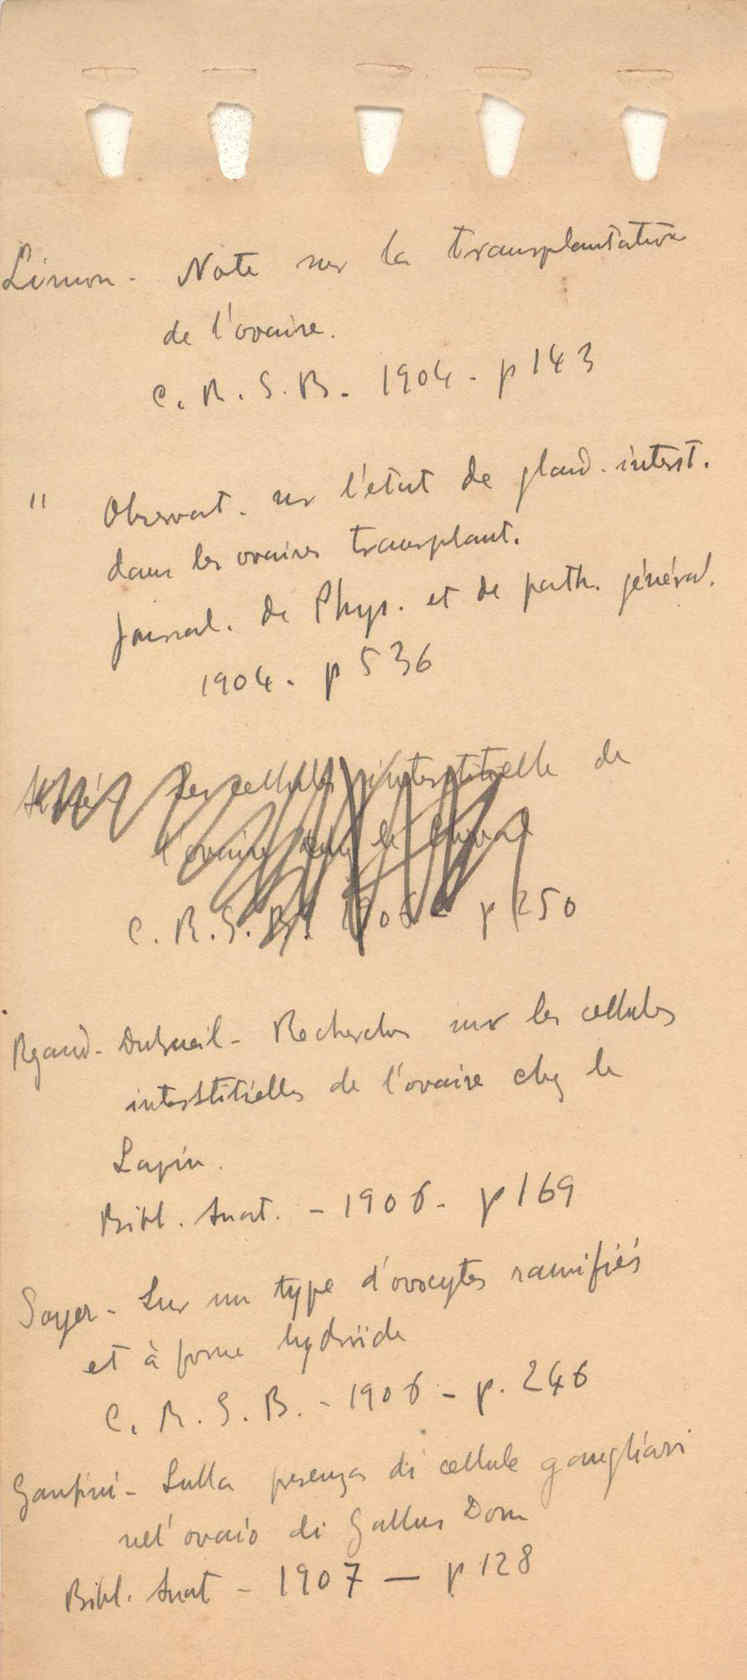 Limon - Note sur la transplantation
de l'ovaire.
C. R. S. B. 1904 - p 143
" Observat. sur l'état de gland. interst.
dans les ovaires transplant.
Journal. de Phys. et de path. général.
1904. p 536
Les cellules interstitielle de
l'ovaire chez le
C. R. S. B. 1906 - p 250
Regaud - Dubreuil - Recherches sur les cellules
interstitielles de l'ovaire chez le
Lapin.
Bibl. Anat. - 1906 - p 169
Soyer - Sur un type d'ovocytes ramifiés
et à forme hydroïde
C. R. S. B. - 1906 - p. 246
Ganfini - Sulla presenza di cellule gangliari
nell'ovaio di Gallus Dom
Bibl. Anat - 1907 - p 128